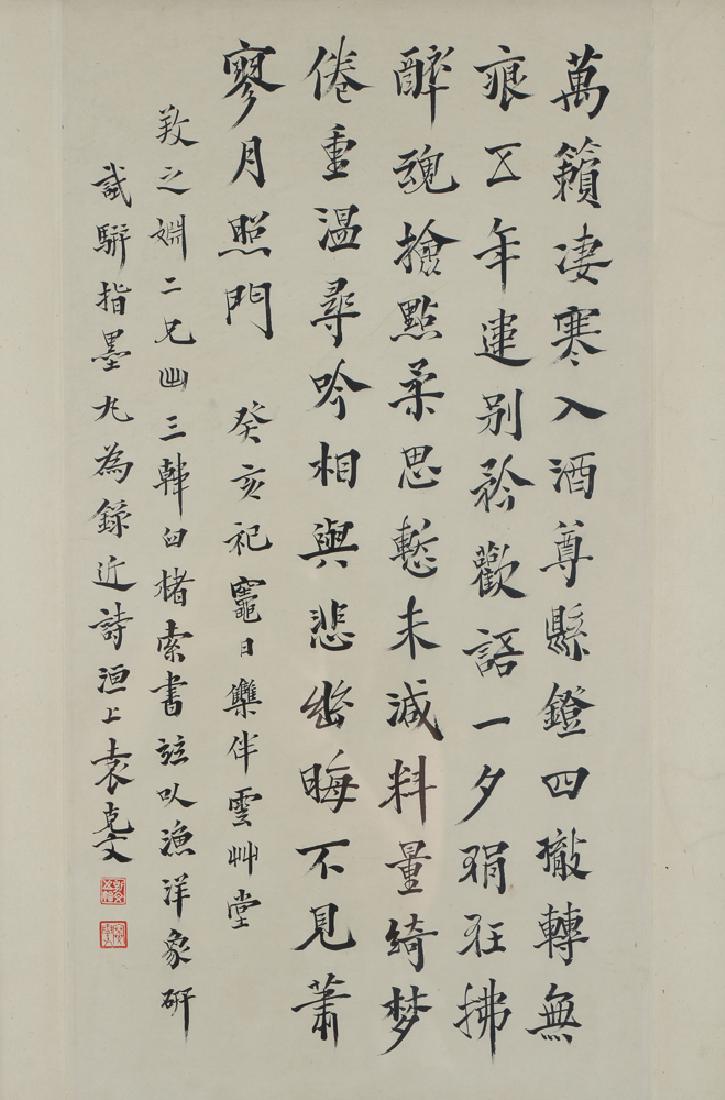 萬籟凄寒入酒尊縣鐙四撤轉無
痕五年連別矜歡語一夕狷狂拂
醉魂撿點柔思慙未減料量綺梦
倦重溫尋吟相與悲幽晦不見蕭
寥月照門 癸亥祀竈日樂伴雲艸堂
之姻二兄出三韓白楮索書玆以漁洋象研
試駢指墨丸為錄近詩洹上袁克文